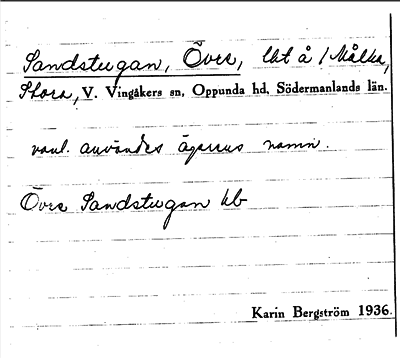 Sandstugan, Övre, lht å /Målka,
Stora, V. Vingåkers sn, Oppunda hd, Södermanlands län.
vanl. användes ägarens namn.
Övre Sandstugan hb
Karin Bergström 1936.